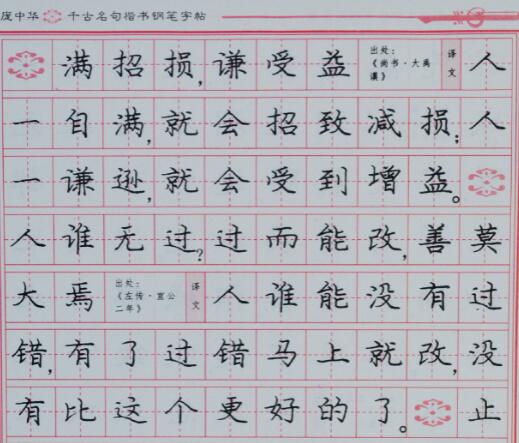 庞中华 千古名句楷书钢笔字帖
满招损,谦受益 出处:《尚书·大禹谟》 译文 人
一自满,就会招致减损;人
一谦逊,就会受到增益。
人谁无过?过而能改,善莫
大焉 出处:《左传·宣公二年》 译文 人谁能没有过
错,有了过错马上就改,没
有比这个更好的了。 止